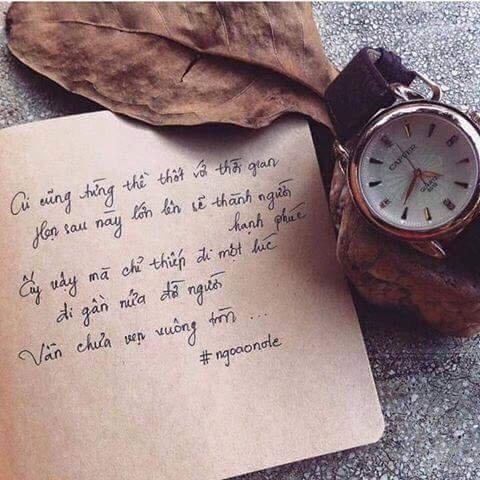 Ai cũng từng thề thốt với thời gian
Hẹn sau này lớn lên sẽ thành người
hạnh phúc
Ấy vậy mà chợp thiếp đi một lúc
đi gần nửa đời người
Vẫn chưa vẹn vuông tròn ...
#ngoaonote
CAPVER
QUARTZ